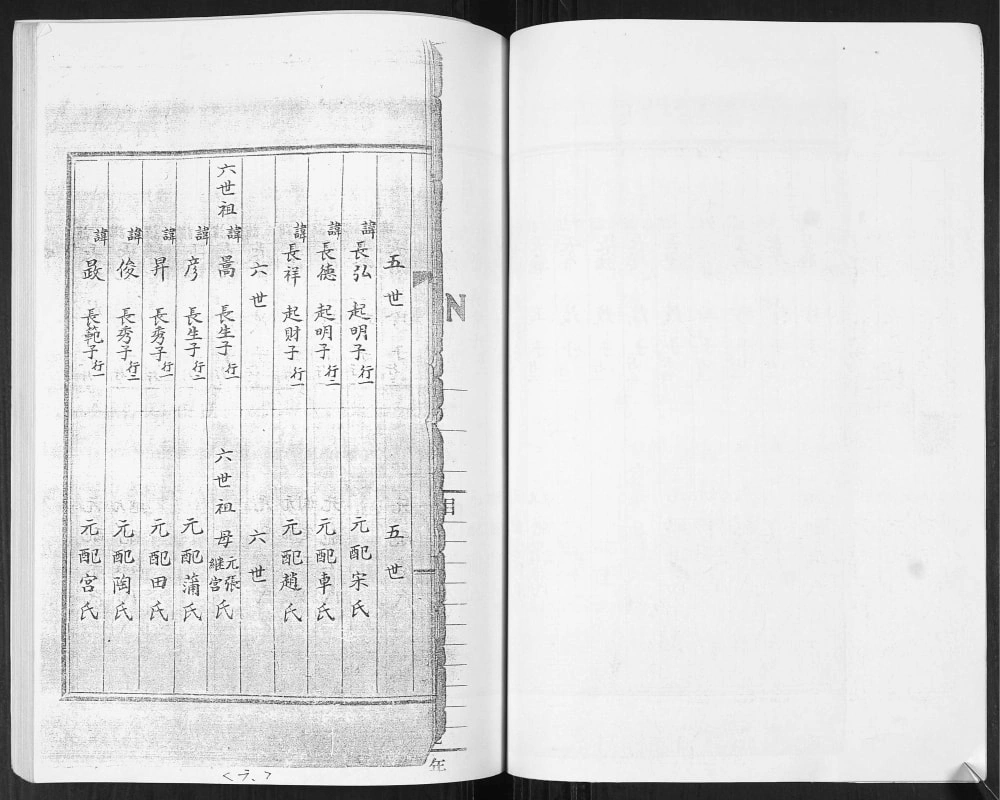 五世 五世
諱長弘 起明子 行一 元配宋氏
諱長德 起明子 行二 元配車氏
諱長祥 起財子 行一 元配趙氏
六世 六世
六世祖 諱暠 長生子 行一 六世祖母 元張 繼宮 氏
諱彦 長生子 行二 元配蒲氏
諱昇 長秀子 行一 元配田氏
諱俊 長秀子 行二 元配陶氏
諱 長範子 行一 元配宮氏
N
目
年
<六、>